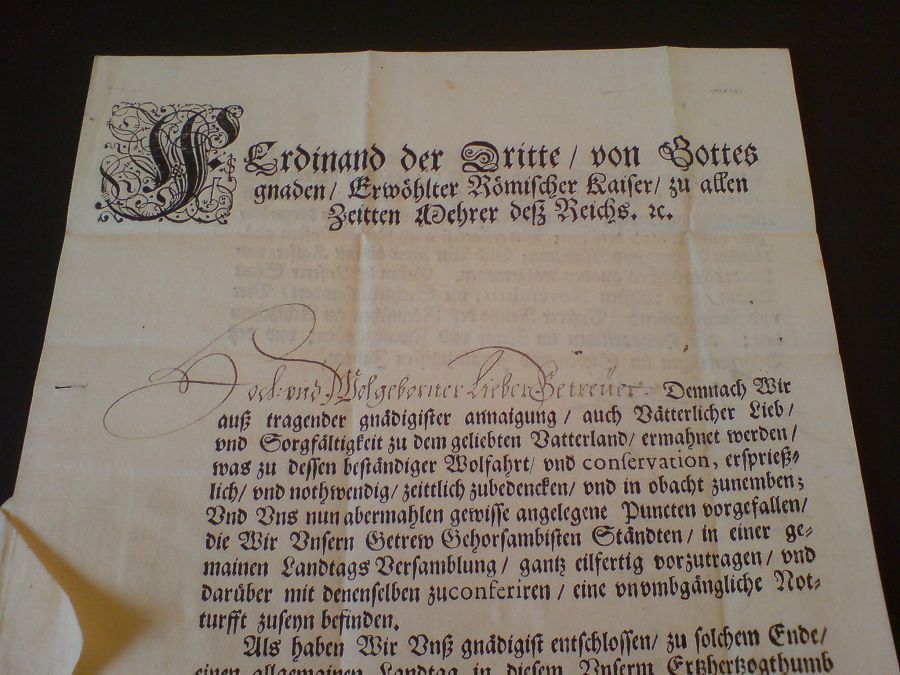 FErdinand der Dritte / von Gottes
gnaden / Erwöhlter Römischer Kaiser / zu allen
Zeitten Mehrer deß Reichs. ꝛc.
Hoch- und Wolgeborner Lieber Getreüer. Demnach Wir
auß tragender gnädigister annaigung / auch Vätterlicher Lieb /
vnd Sorgfältigkeit zu dem geliebten Vatterland / ermahnet werden /
was zu dessen beständiger Wolfahrt / vnd conservation, ersprieß⸗
lich / vnd nothwendig / zeittlich zubedencken / vnd in obacht zunemben;
Vnd Vns nun abermahlen gewisse angelegene Puncten vorgefallen /
die Wir Vnsern Getrew Gehorsambisten Ständten / in einer ge⸗
mainen Landtags Versamblung / gantz eilfertig vorzutragen / vnd
darüber mit denenselben zuconferiren / eine vnvmbgängliche Not⸗
turfft zuseyn befinden.
Als haben Wir Vnß gnädigist entschlossen / zu solchem Ende /
einen allgemainen Landtag in diesem Vnserm Ertzhertzogthumb